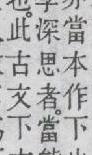 當本作下
深思者。當
也。此古文下